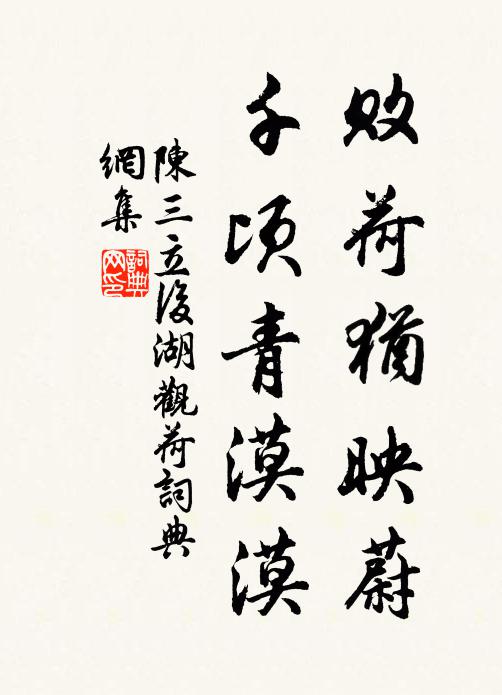 敗荷猶映蔚
千頃青漠漠
陳三立後湖觀荷詞典
網集
詞典网印